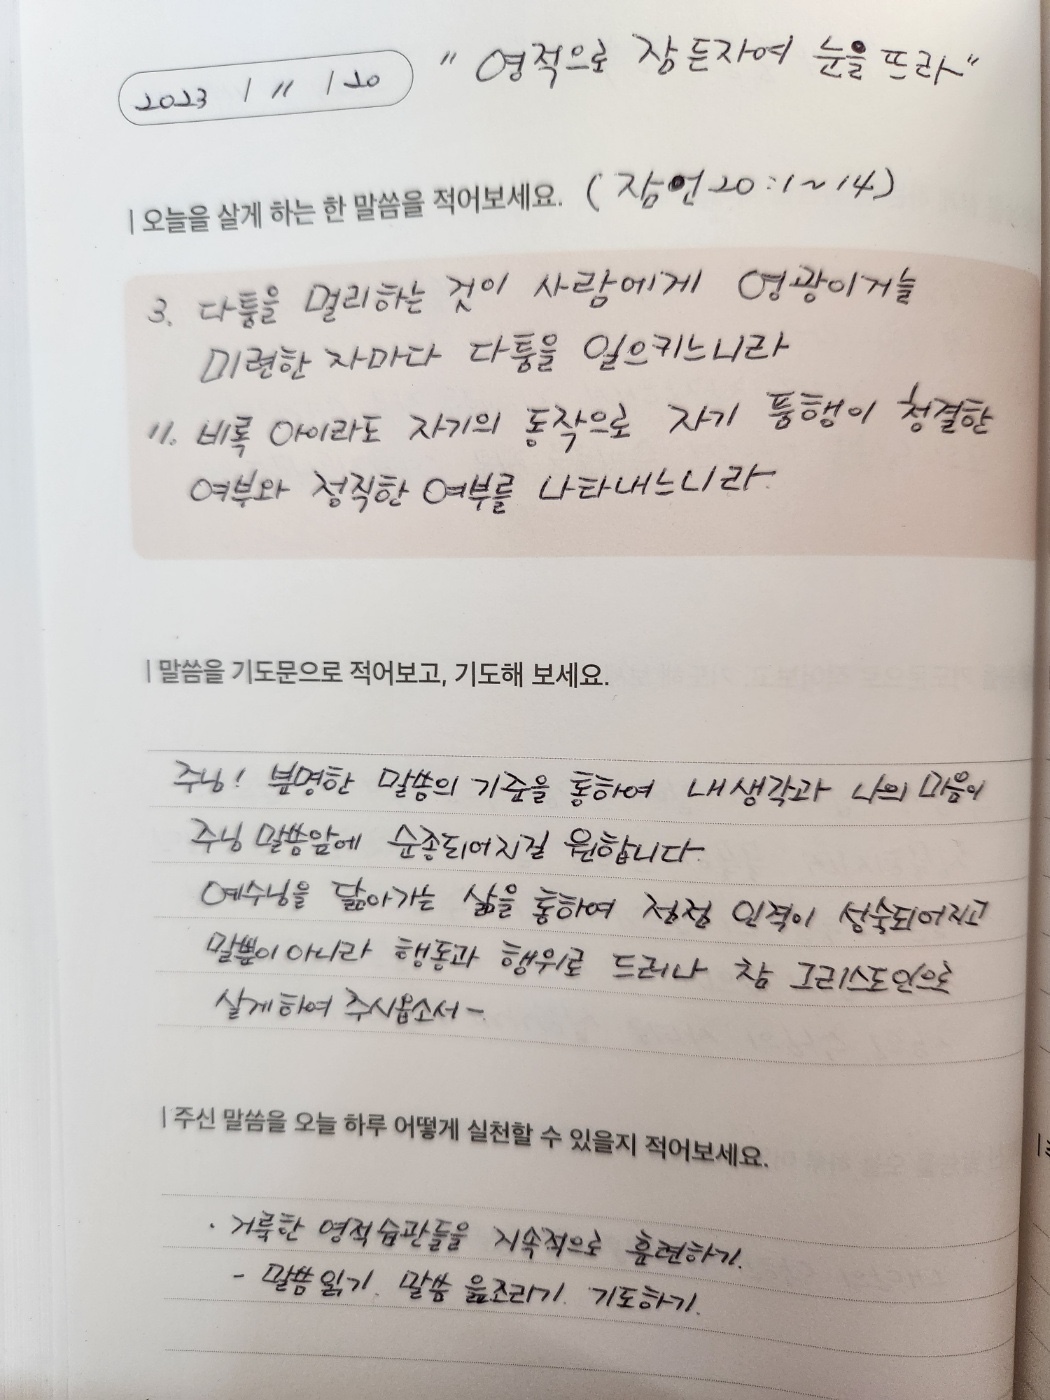 2023 / 11 / 20 " 영적으로 잠든자여 눈을 뜨라"
| 오늘을 살게 하는 한 말씀을 적어보세요. ( 잠언 20 : 1 ~ 14 )
3. 다툼을 멀리하는 것이 사람에게 영광이거늘
미련한 자마다 다툼을 일으키느니라
11. 비록 아이라도 자기의 동작으로 자기 품행이 청결한
여부와 정직한 여부를 나타내느니라.
| 말씀을 기도문으로 적어보고, 기도해 보세요.
주님! 분명한 말씀의 기준을 통하여 내 생각과 나의 마음이
주님 말씀앞에 순종되어지길 원합니다.
예수님을 닮아가는 삶을 통하여 점점 인격이 성숙되어지고
말뿐이 아니라 행동과 행위로 드러나 참 그리스도인으로
살게하여 주시옵소서 -
| 주신 말씀을 오늘 하루 어떻게 실천할 수 있을지 적어보세요.
· 거룩한 영적습관들을 지속적으로 훈련하기.
- 말씀읽기. 말씀 읊조리기. 기도하기.